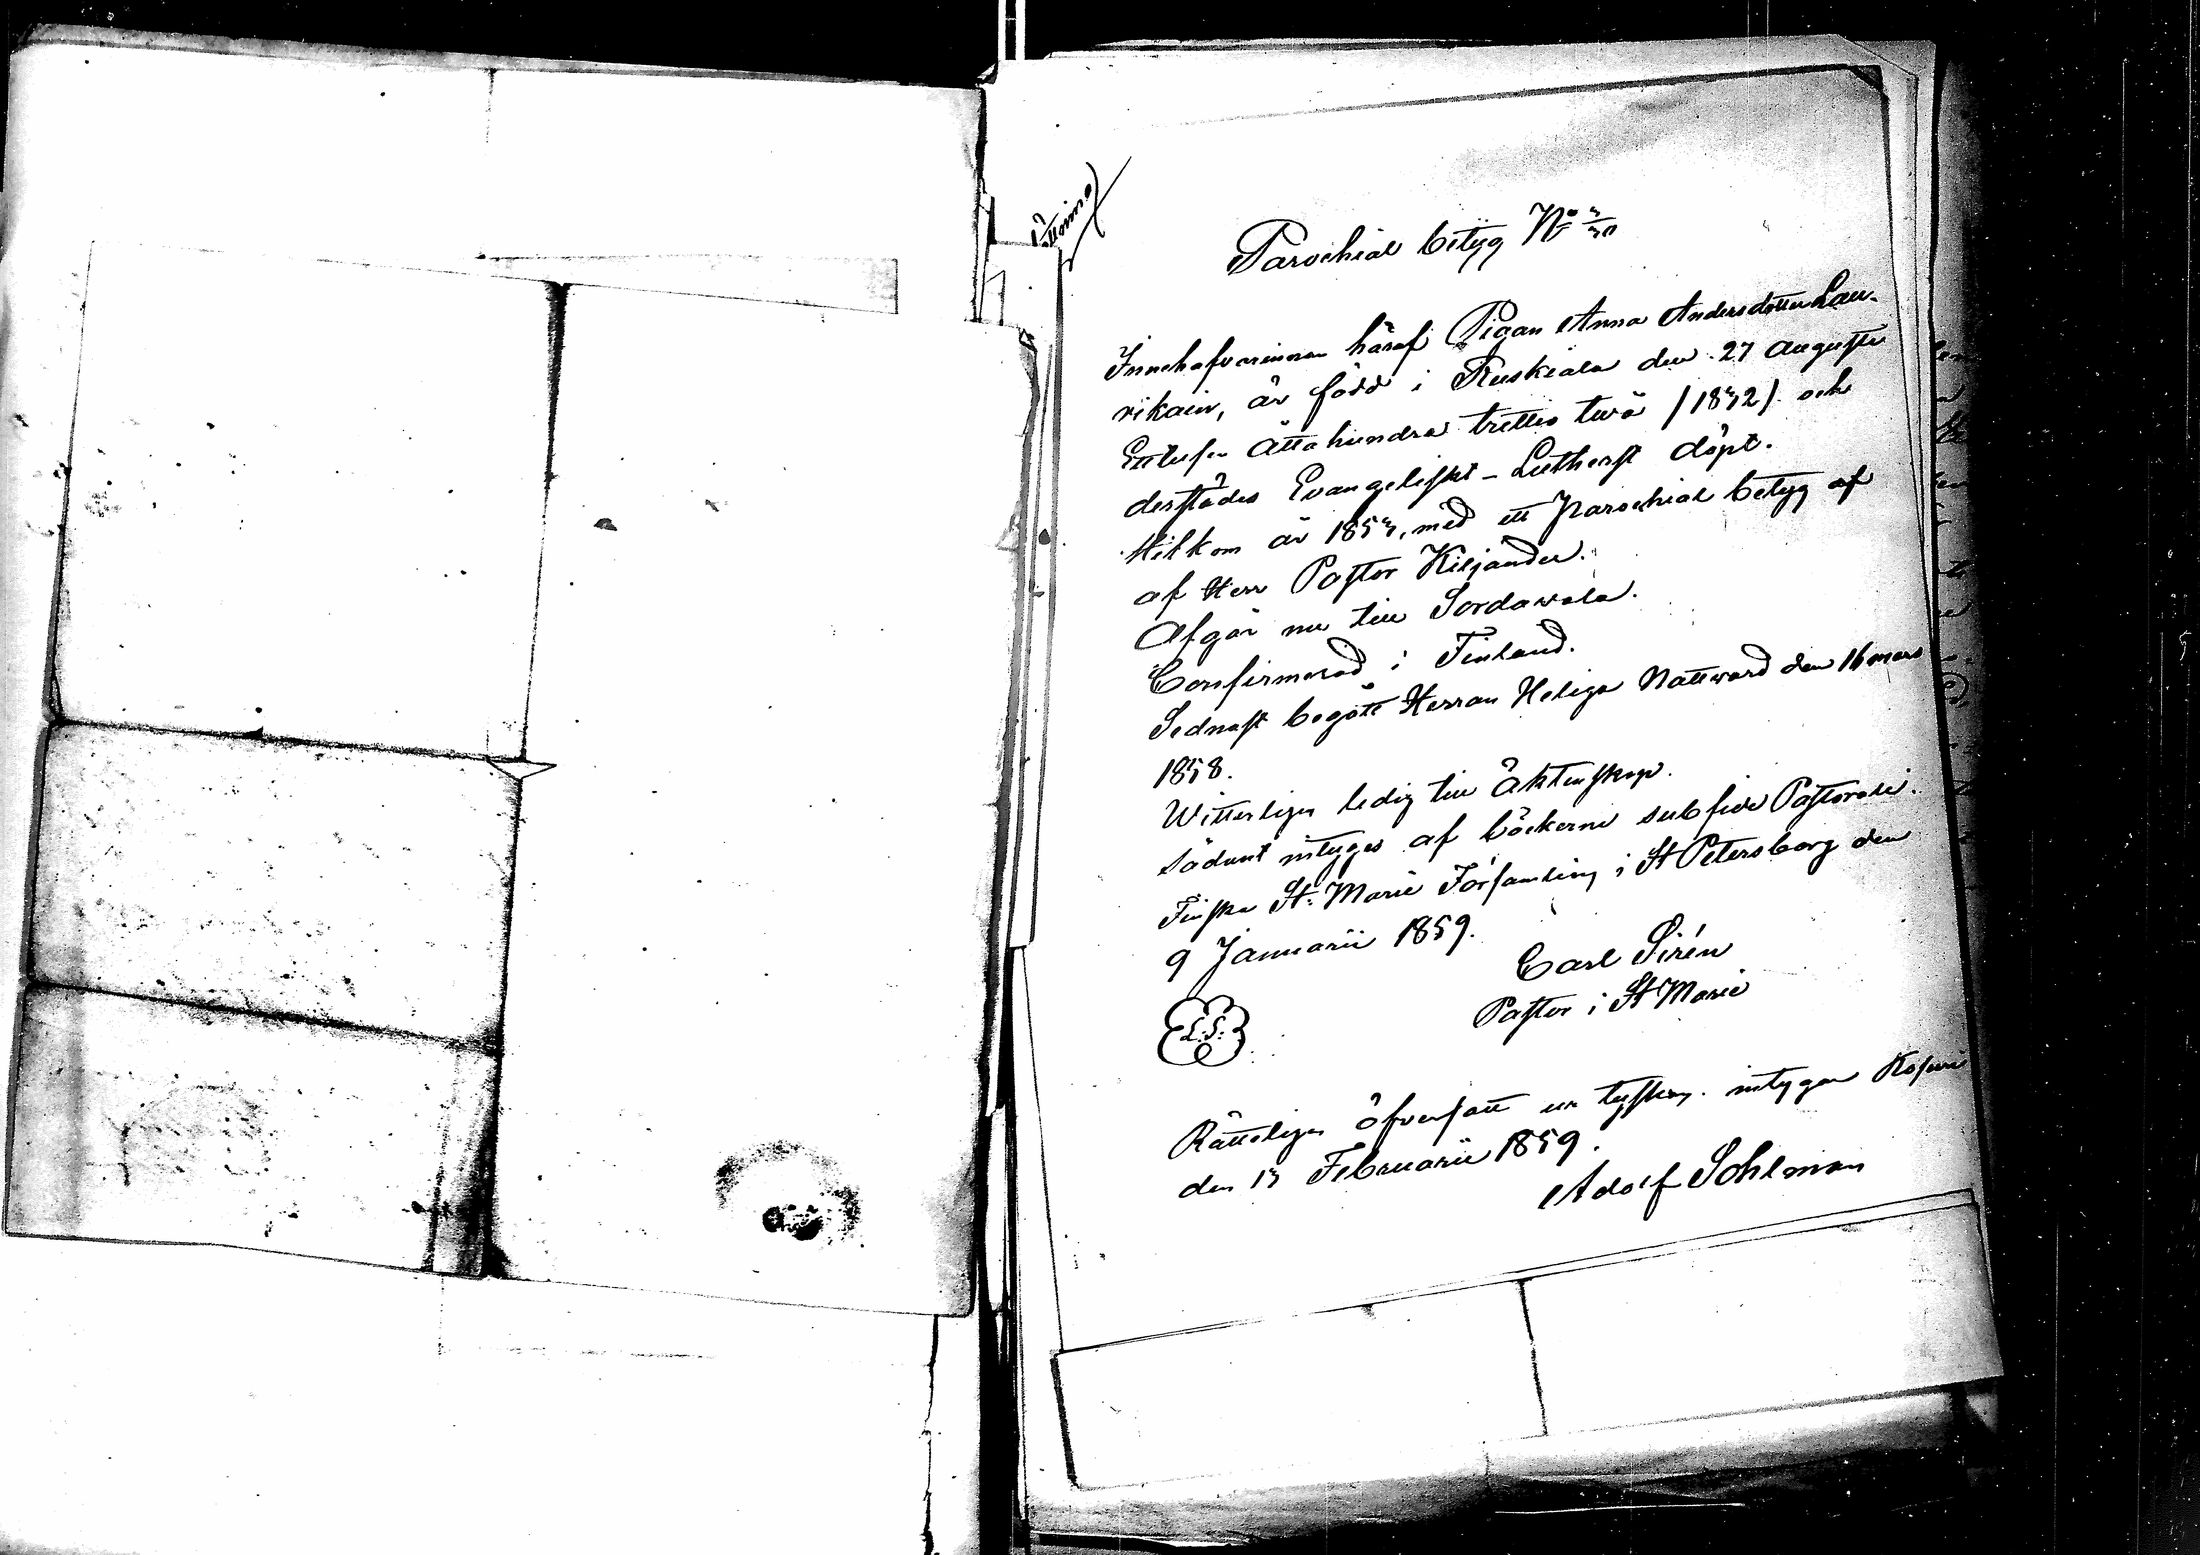 Parochial betÿg No 3/30
Innehafvarinnan häraf Pigan Anna Andersdotter Lau-
rikain, är född i Ruskiala den 27 Augusti
Ettusen Åttahundra trettio twå /1832/ och
derstädes Evangeliskt-Lutherst döpt.
Hitkom år 1853, med ett Parochial betyg af
af Herr Pastor Kiljander.
Afgår nu till Sordawala.
Confirmerad i Finland.
Sednast begått Herran Heliga Nattward den 16 mars
1858.
Witterligen ledig till Äktenskap.
Sådant intyges af böckerne sub fide Pastorali.
Finska St. Marie Församling i St Petersborg den
9 Januarii 1859.
Carl Sirén
Pastor i St Marie
L.S.
Rätteligen öfversatt ur tyskan, intygar
den 13 Februarii 1859.
Adolf Sohlman